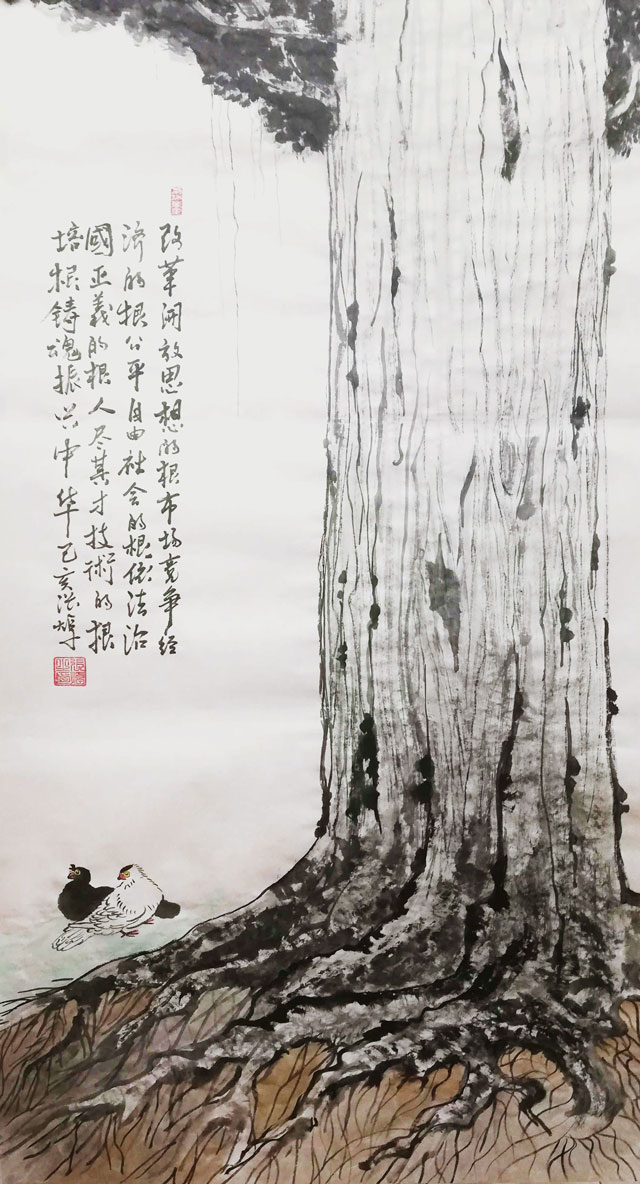 改革開放思想的根市场竞争经
济的根公平自由社会的根依法治
國正義的根人尽其才技術的根
培根鑄魂振兴中华己亥